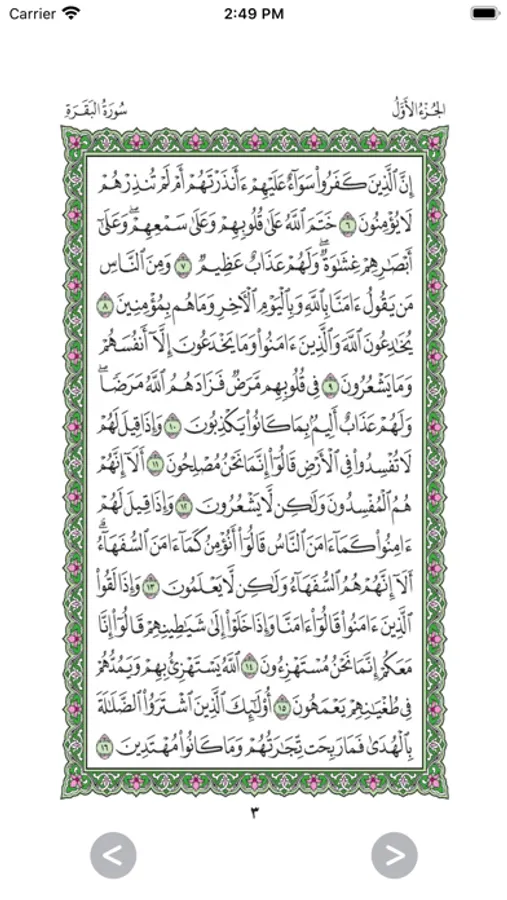 Carrier 2:49 PM
الجُزْءُ الأَوَّلُ سُورَةُ البَقَرَةِ
إِنَّ ٱلَّذِينَ كَفَرُوا۟ سَوَآءٌ عَلَيْهِمْ ءَأَنذَرْتَهُمْ أَمْ لَمْ تُنذِرْهُمْ
لَا يُؤْمِنُونَ ٦ خَتَمَ ٱللَّهُ عَلَىٰ قُلُوبِهِمْ وَعَلَىٰ سَمْعِهِمْ ۖ وَعَلَىٰٓ
أَبْصَٰرِهِمْ غِشَٰوَةٌ ۖ وَلَهُمْ عَذَابٌ عَظِيمٌ ٧ وَمِنَ ٱلنَّاسِ
مَن يَقُولُ ءَامَنَّا بِٱللَّهِ وَبِٱلْيَوْمِ ٱلْءَاخِرِ وَمَا هُم بِمُؤْمِنِينَ ٨
يُخَٰدِعُونَ ٱللَّهَ وَٱلَّذِينَ ءَامَنُوا۟ وَمَا يَخْدَعُونَ إِلَّآ أَنفُسَهُمْ
وَمَا يَشْعُرُونَ ٩ فِى قُلُوبِهِم مَّرَضٌ فَزَادَهُمُ ٱللَّهُ مَرَضًا ۖ
وَلَهُمْ عَذَابٌ أَلِيمٌۢ بِمَا كَانُوا۟ يَكْذِبُونَ ١٠ وَإِذَا قِيلَ لَهُمْ
لَا تُفْسِدُوا۟ فِى ٱلْأَرْضِ قَالُوٓا۟ إِنَّمَا نَحْنُ مُصْلِحُونَ ١١ أَلَآ إِنَّهُمْ
هُمُ ٱلْمُفْسِدُونَ وَلَٰكِن لَّا يَشْعُرُونَ ١٢ وَإِذَا قِيلَ لَهُمْ
ءَامِنُوا۟ كَمَآ ءَامَنَ ٱلنَّاسُ قَالُوٓا۟ أَنُؤْمِنُ كَمَآ ءَامَنَ ٱلسُّفَهَآءُ ۗ
أَلَآ إِنَّهُمْ هُمُ ٱلسُّفَهَآءُ وَلَٰكِن لَّا يَعْلَمُونَ ١٣ وَإِذَا لَقُوا۟
ٱلَّذِينَ ءَامَنُوا۟ قَالُوٓا۟ ءَامَنَّا وَإِذَا خَلَوْا۟ إِلَىٰ شَيَٰطِينِهِمْ قَالُوٓا۟ إِنَّا
مَعَكُمْ إِنَّمَا نَحْنُ مُسْتَهْزِءُونَ ١٤ ٱللَّهُ يَسْتَهْزِئُ بِهِمْ وَيَمُدُّهُمْ
فِى طُغْيَٰنِهِمْ يَعْمَهُونَ ١٥ أُو۟لَٰٓئِكَ ٱلَّذِينَ ٱشْتَرَوُا۟ ٱلضَّلَٰلَةَ
بِٱلْهُدَىٰ فَمَا رَبِحَت تِّجَٰرَتُهُمْ وَمَا كَانُوا۟ مُهْتَدِينَ ١٦
٣